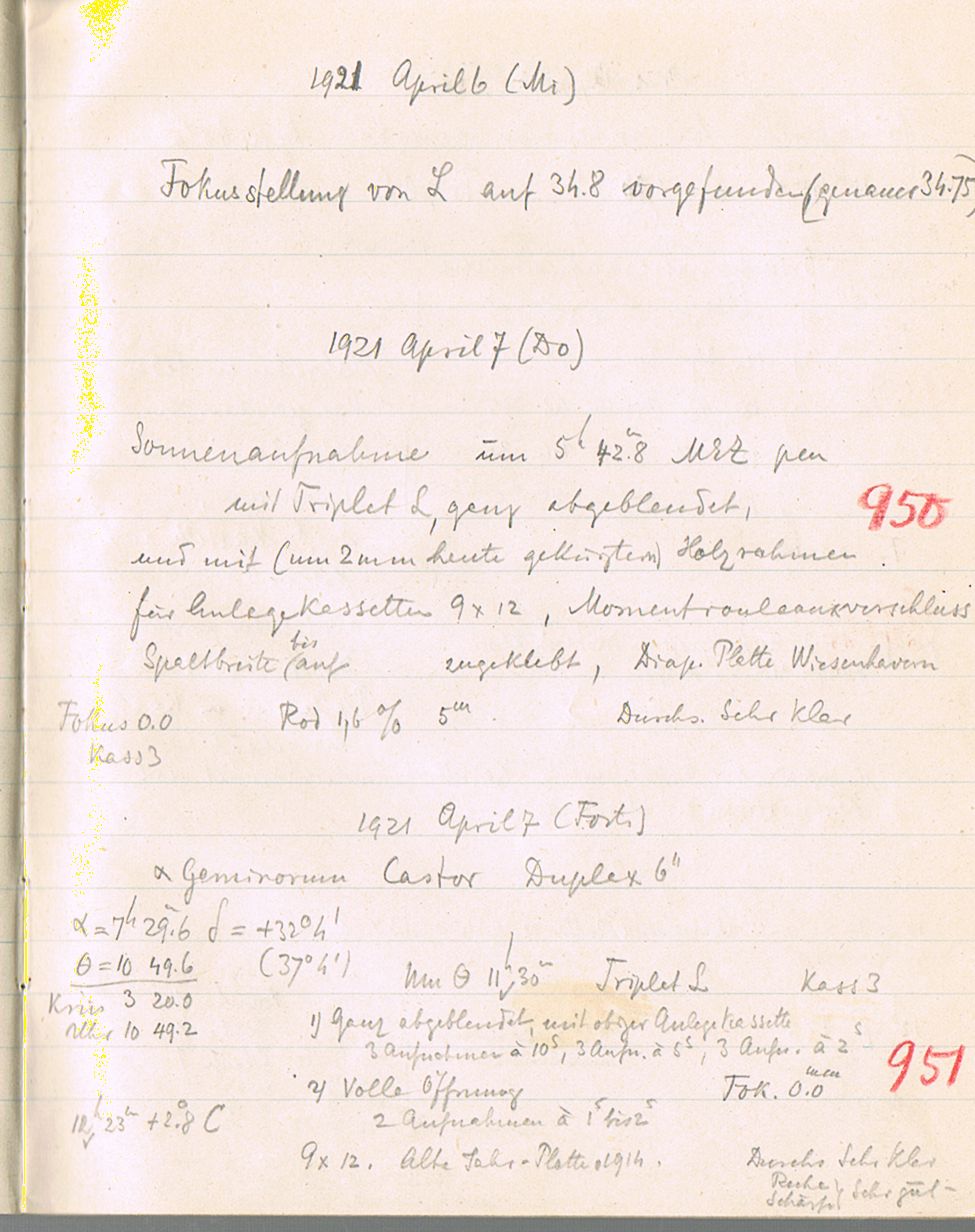 1921 April 6 (Mi)
Fokusstellung von L auf 34.8 vorgefunden (genauer 34.75)
1921 April 7 (Do)
Sonnenaufnahme um 5h 42m.8 MEZ
mit Triplet L, ganz abgeblendet,
950
und mit (um 2mm heute gekürztem) Holzrahmen
für Anlegekassetten 9 x 12, Momentrouleauxverschluss
Spaltbreite bis auf zugeklebt, Diap. Platte Wiesenhavern
Fokus 0.0 Rod 1,6 % 5m. Durchs. Sehr klar
Kass 3
1921 April 7 (Forts)
α Geminorum Castor Duplex 6"
α = 7h 29m.6 δ = +32° 4'
θ = 10 49.6 (37° 4') Um θ 11h 30m Triplet L Kass 3
3 20.0
Uhr 10 49.2 1) Ganz abgeblendet, mit obiger Anlegekassette
3 Aufnahmen à 10s, 3 Aufn. à 5s, 3 Aufn. à 2s
951
2) Volle Öffnung Fok. 0.0 mm
23m +2°.8 C 2 Aufnahmen à 1s bis 2s
9 x 12. Alte Jahr-Platte 1914. Durchs Sehr klar
Ruhe
Schärfe } Sehr gut -